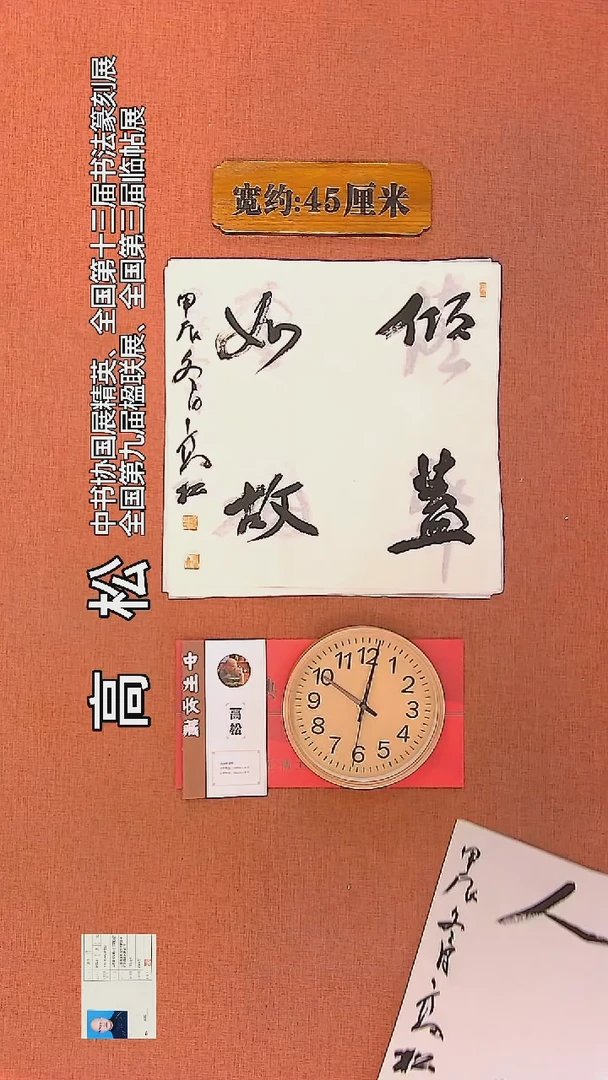 宽约:45厘米
倾盖
如故
甲辰冬日高松
高松
中书协国展精英、全国第十三届书法篆刻展
全国第九届楹联展、全国第三届临帖展
高松
12
1
2
3
4
5
6
7
8
9
10
11
人
甲辰冬月高松